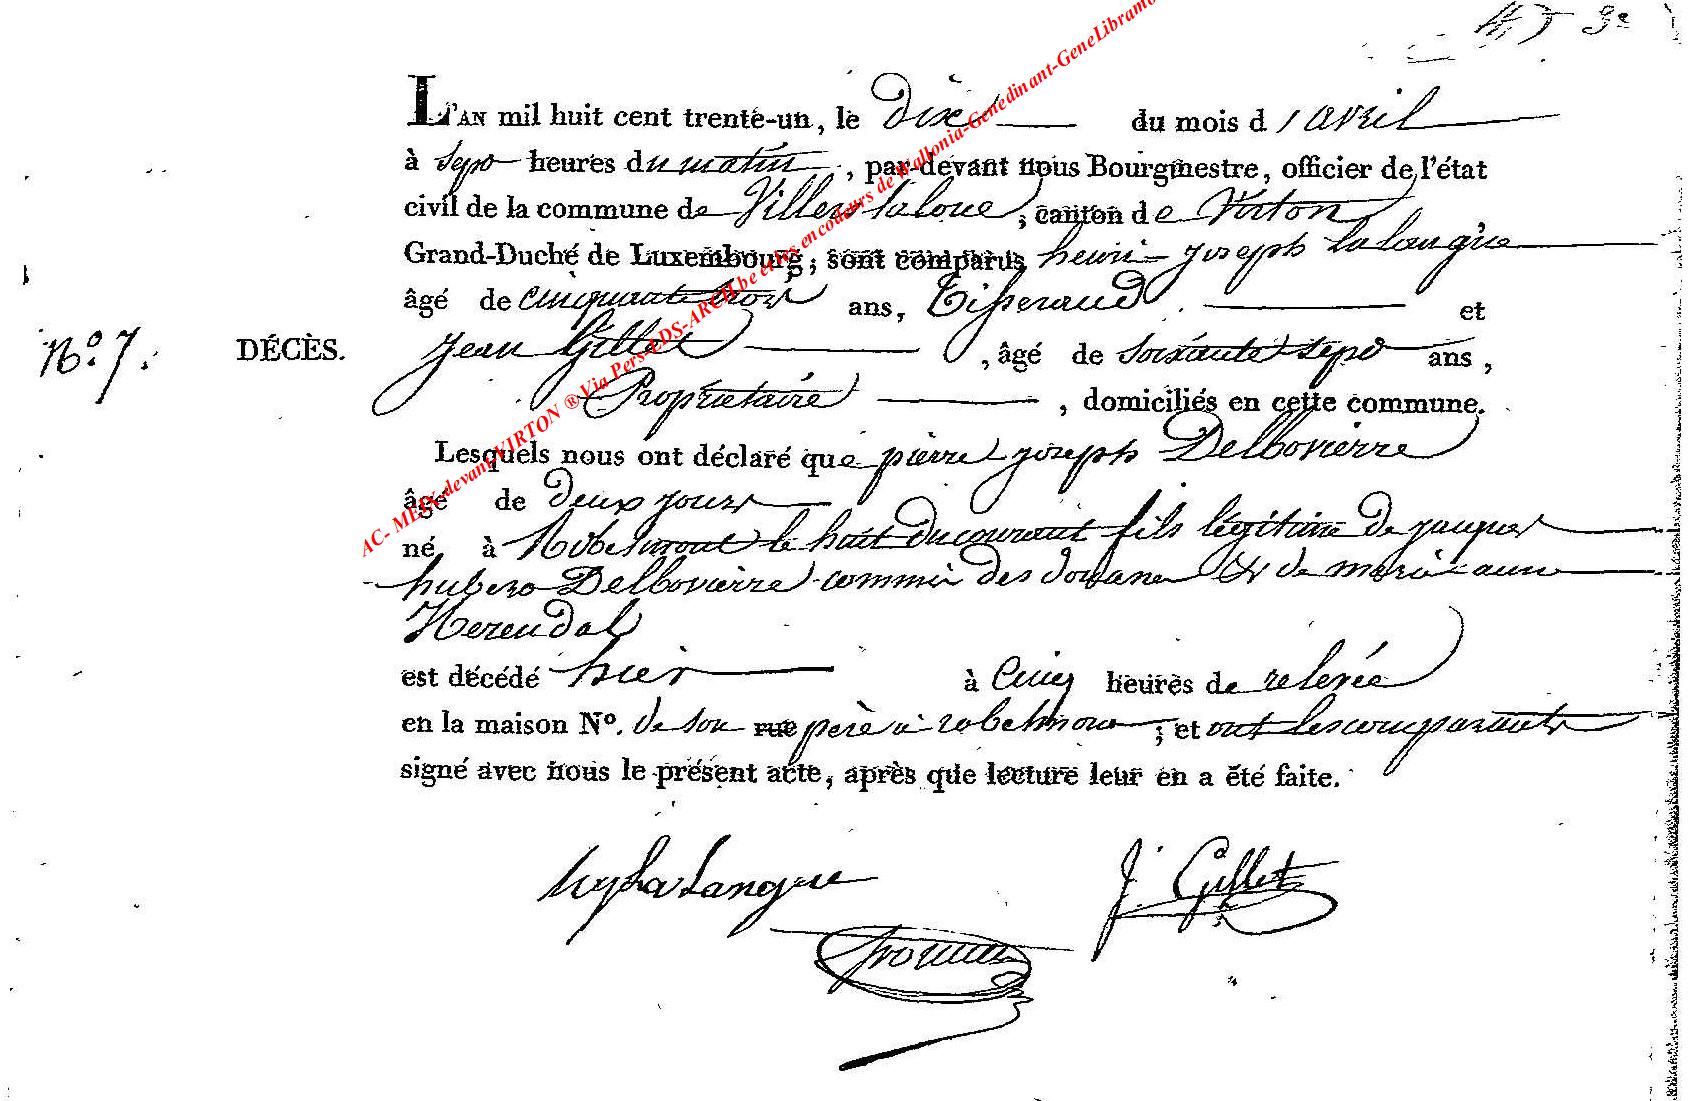 L'AN mil huit cent trente-un, le dix du mois d'avril
à sept heures du matin, par-devant nous Bourgmestre, officier de l'état
civil de la commune de Villers laloue, canton de Virton
Grand-Duché de Luxembourg; sont comparus henri joseph lalangue
âgé de cinquante trois ans, Tisserand et
Jean Gillet, âgé de soixante sept ans,
N.º 7. DÉCÈS.
Propriétaire, domiciliés en cette commune.
Lesquels nous ont déclaré que pierre joseph Delbovierre
âgé de deux jours
né à Robelmont le huit du courant fils légitime de jaques
hubert Delbovierre commis des douanes & de marie anne
Herendal
est décédé hier à cinq heures de relevée
en la maison Nº. de son rue père à robelmont; et ont les comparants
signé avec nous le présent acte, après que lecture leur en a été faite.
hyLaLangue J. Gillet
AC- MEIX-devant-VIRTON ® Via Pers-LDS-ARCH.be et/ou en concours de Wallonia-Genedinant-GeneLibramo